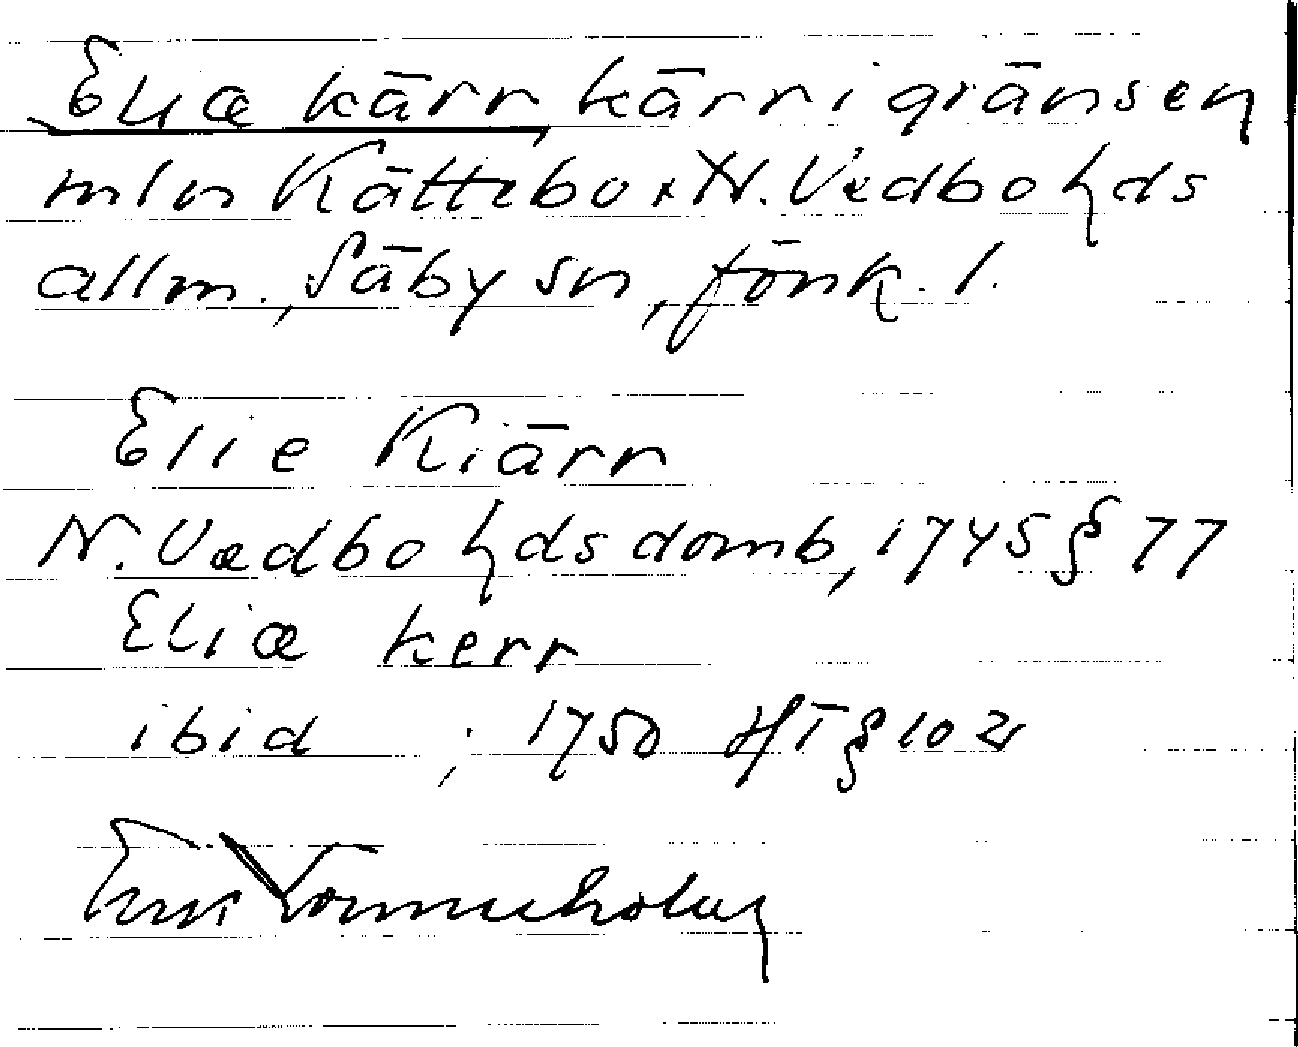 Eliæ kärr, kärr i gränsen
mln Kättebo x N. Vedbo hds
allm., Säby sn, Jönk. l.
Elie Kiärr
N. Vedbo hds domb, 1745 § 77
Eliæ kerr
ibid ; 1750 HT § 102